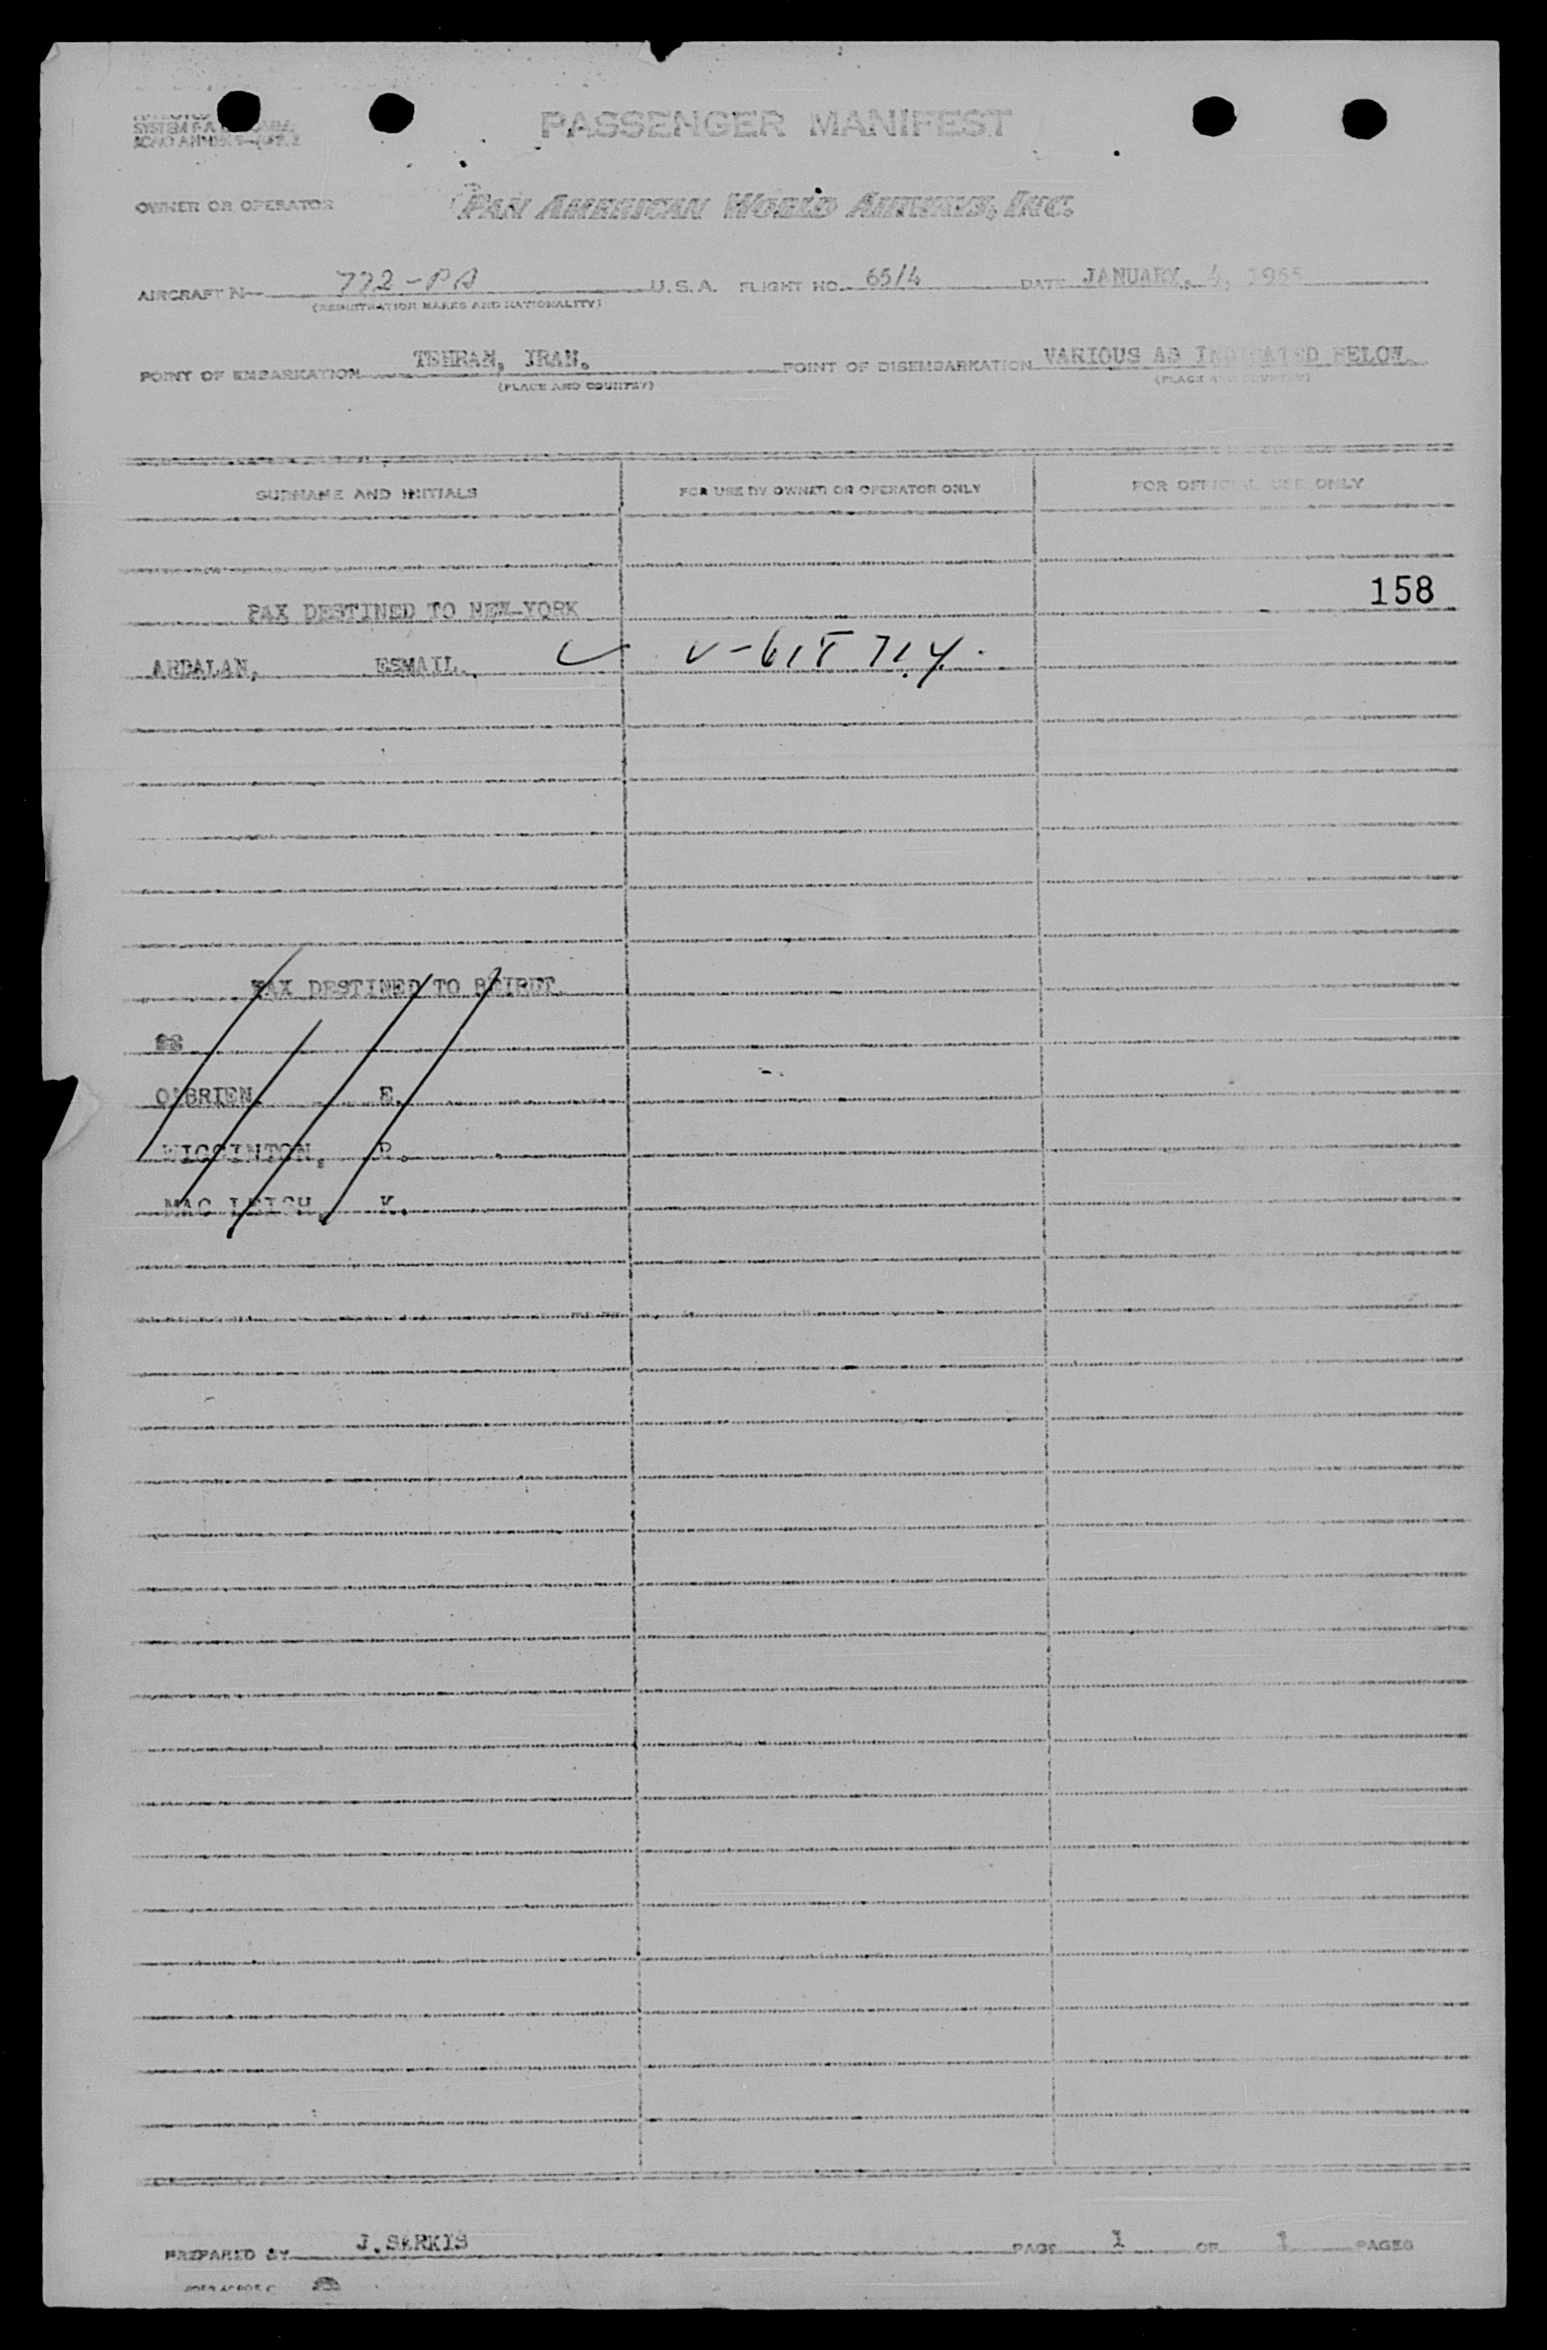 PASSENGER MANIFEST
OWNER OR OPERATOR PAN AMERICAN WORLD AIRWAYS, INC.
AIRCRAFT N 772-PA U.S.A. FLIGHT NO. 65/4 DATE JANUARY, 4, 1955
(REGISTRATION MARKS AND NATIONALITY)
POINT OF EMBARKATION TEHRAN, IRAN. POINT OF DISEMBARKATION VARIOUS AS INDICATED BELOW.
(PLACE AND COUNTRY) (PLACE AND COUNTRY)
SURNAME AND INITIALS FOR USE BY OWNER OR OPERATOR ONLY FOR OFFICIAL USE ONLY
158
PAX DESTINED TO NEW-YORK
ARDALAN, ESMAIL.
PAX DESTINED TO BEIRUT.
O'BRIEN, E.
WIGGINTON, R.
MAC K.
PREPARED BY J.SARKIS PAGE 1 OF 1 PAGES